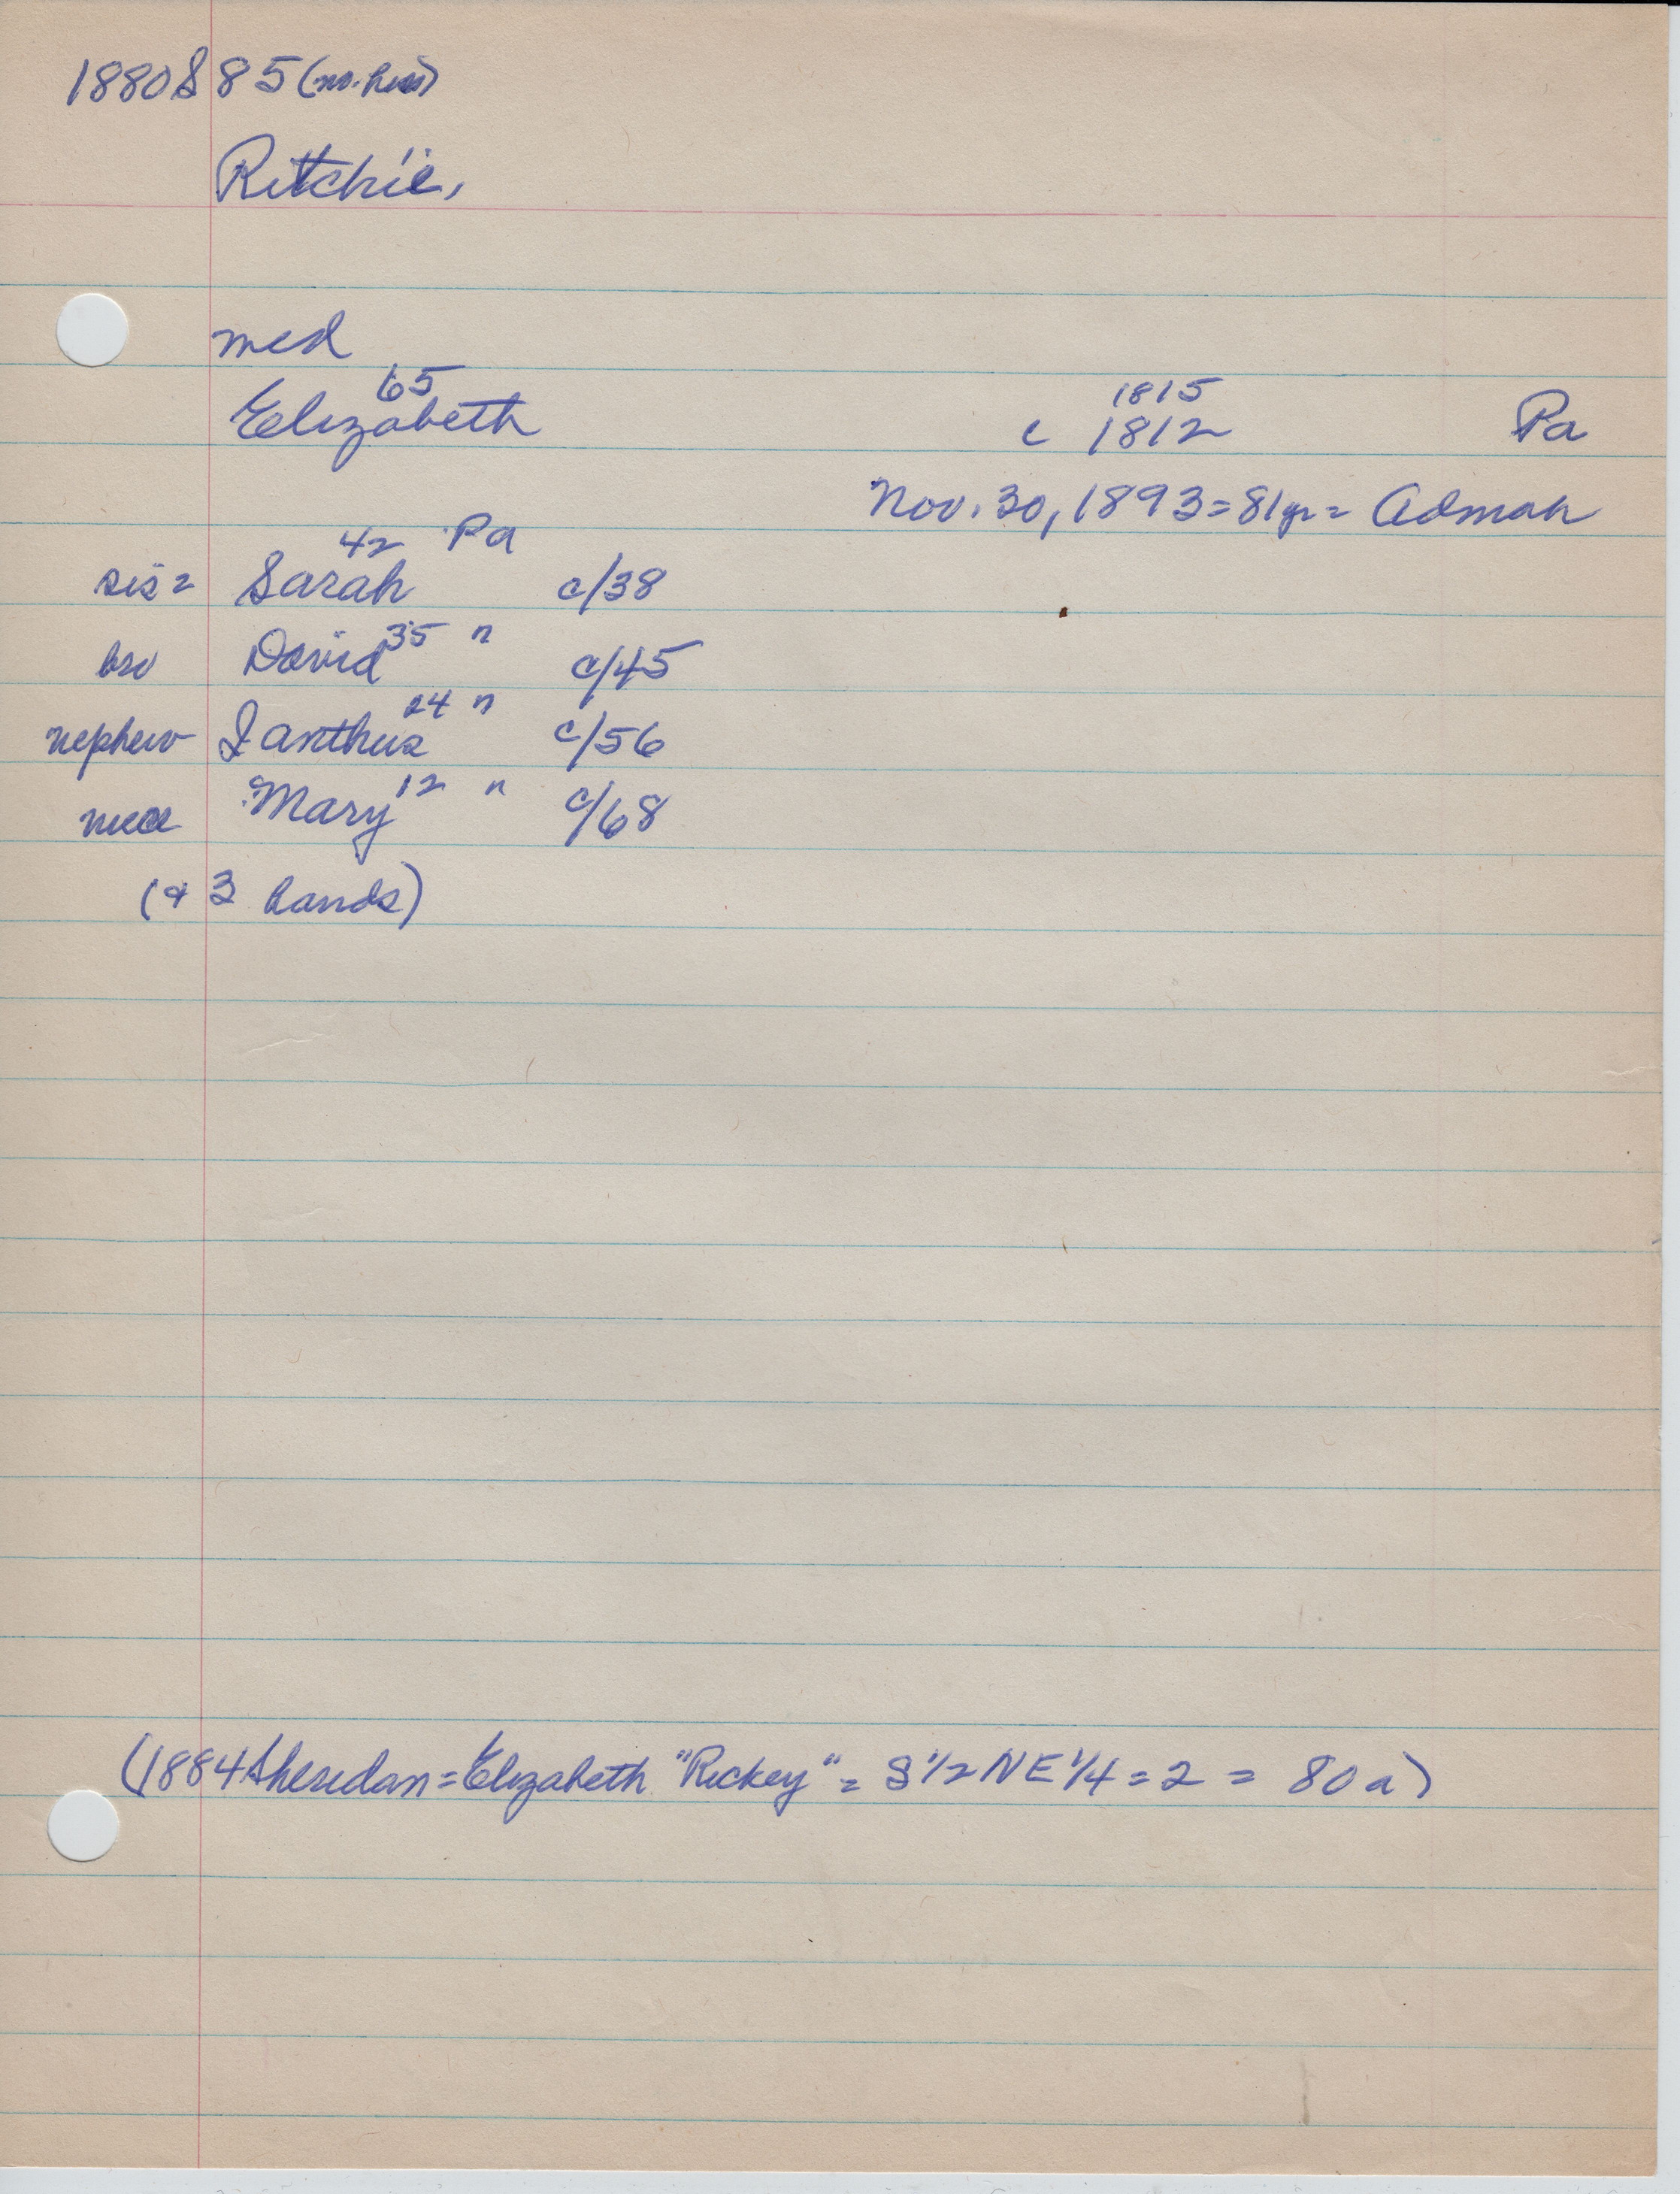 1880 S 85 (no. hus)
Ritchie,
med
65
Elizabeth
1815
c 1812 Pa
Nov. 30, 1893 = 81 yr = Admah
42 Pa
sis = Sarah c/38
35 "
bro David c/45
24 "
nephew Ianthus c/56
12 "
niece Mary c/68
(+ 3 hands)
(1884 Sheridan = Elizabeth "Rickey" = S 1/2 NE 1/4 = 2 = 80 a)